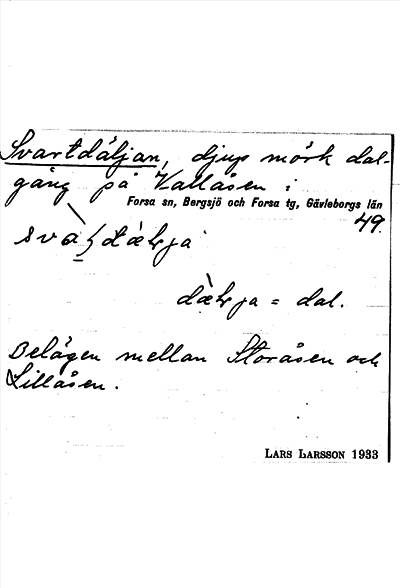 Svartdäljan, djup mörk dal-
gång på Vallåsen i
Forsa sn, Bergsjö och Forsa tg, Gävleborgs län
49.
dal.
Belägen mellan Storåsen och
Lillåsen.
LARS LARSSON 1933